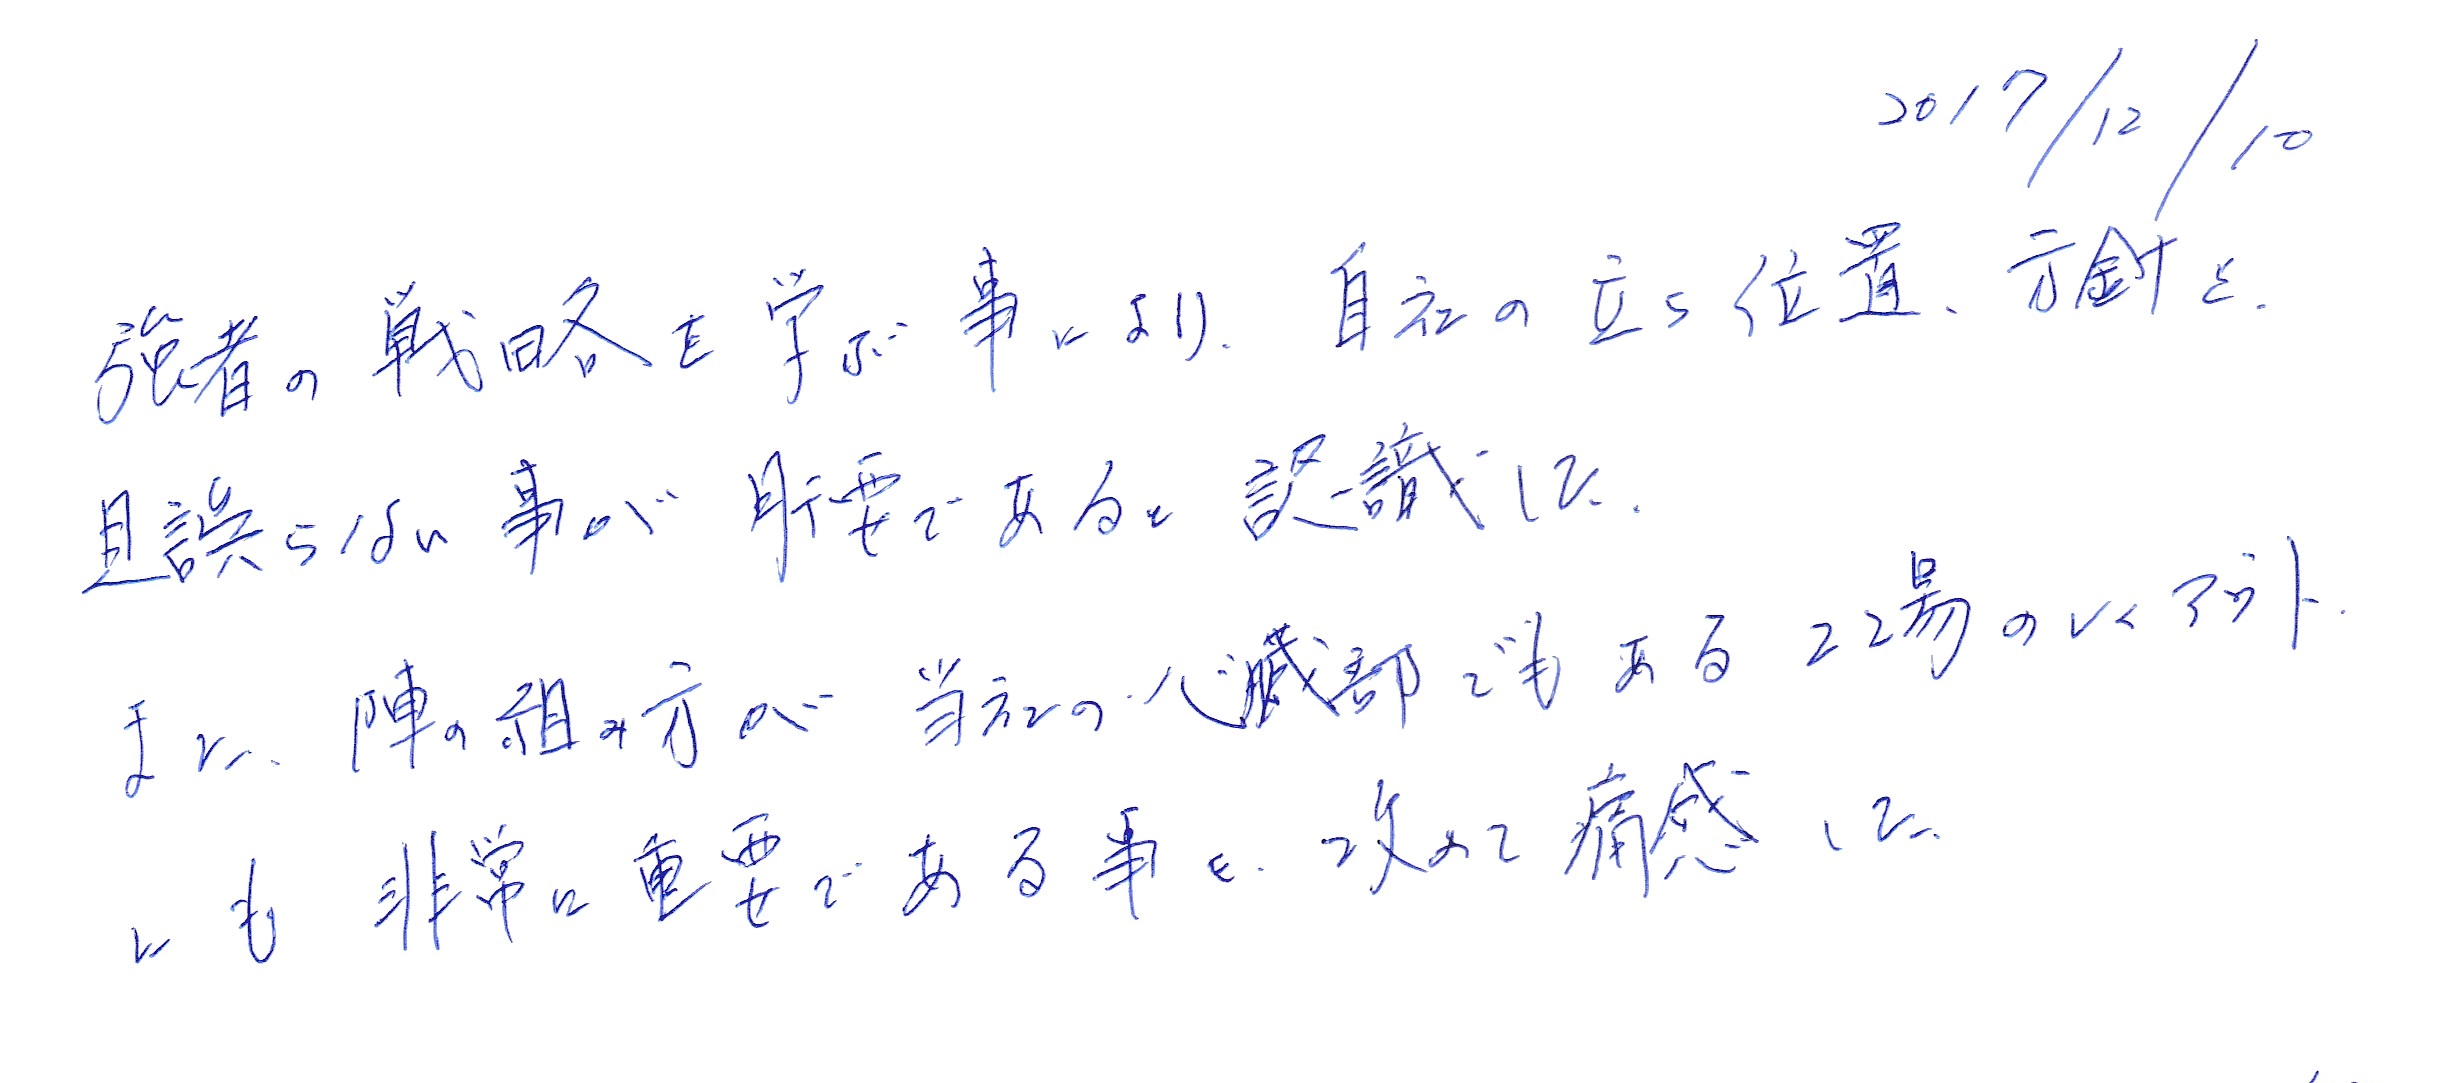 2017/12/10
強者の戦略を学ぶ事により、自社の立ち位置、方針を、
見誤らない事が肝要であると認識した。
また、陣の組み方が当社の心臓部でもある工場のレイアウト、
にも非常に重要である事を、改めて痛感した。